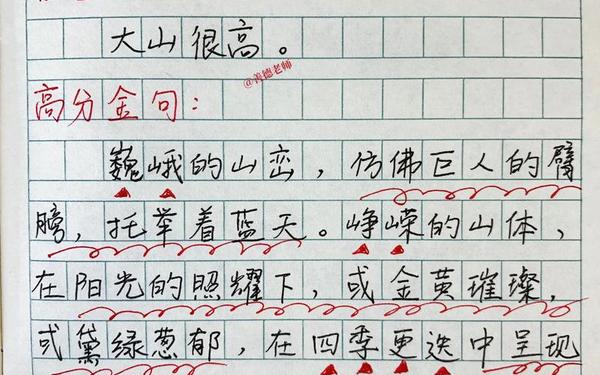 大山很高。
@善德老师
高分金句：
巍峨的山峦，仿佛巨人的臂
膀，托举着蓝天。峥嵘的山体，
在阳光的照耀下，或金黄璀璨，
或黛绿葱郁，在四季更迭中呈现